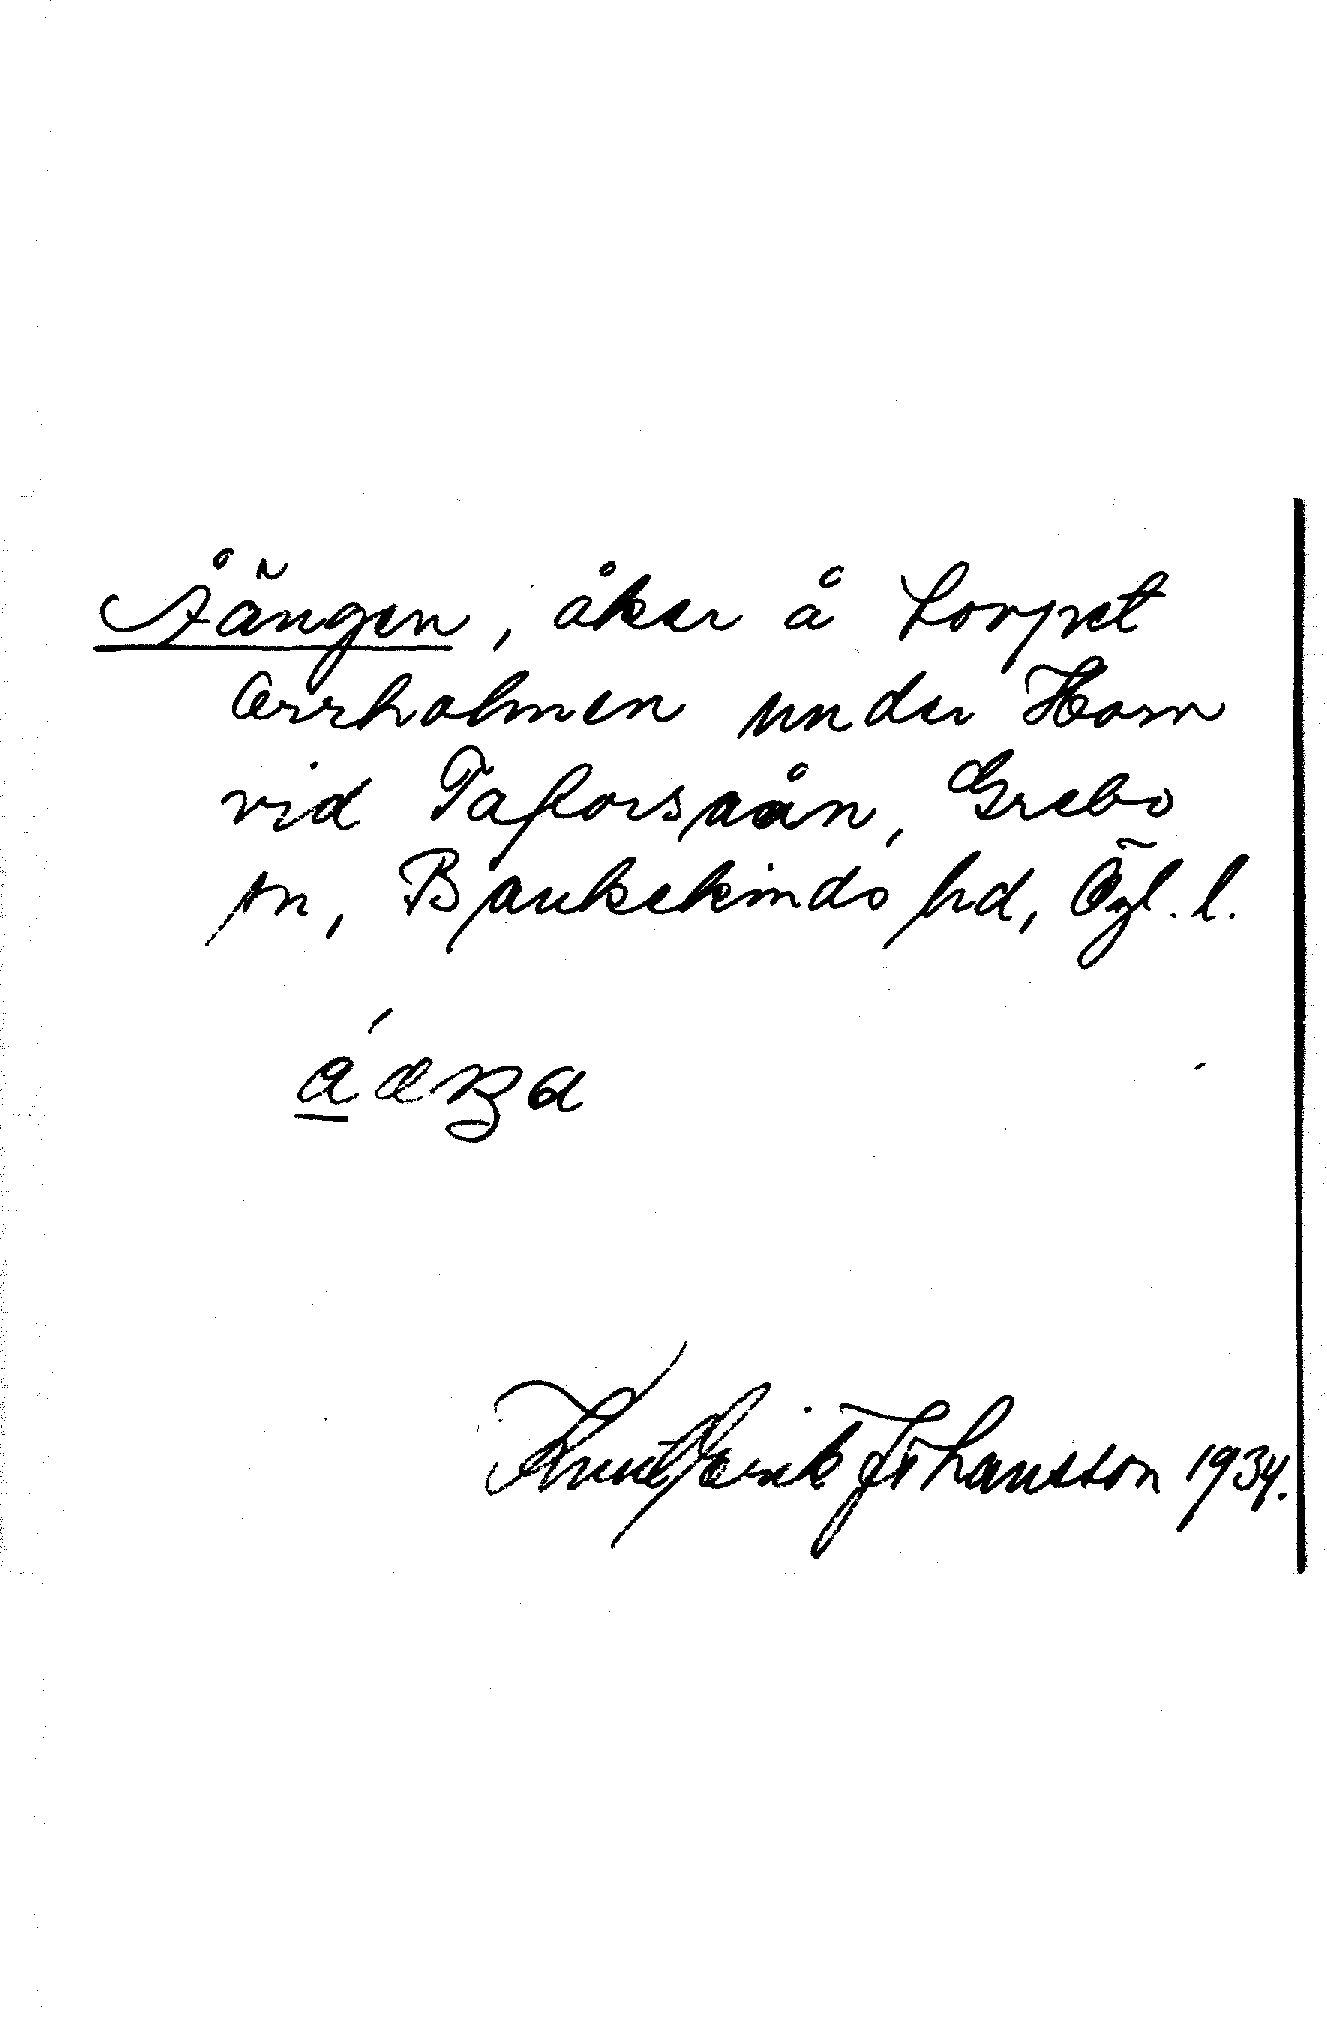 Åängen, åker å torpet
Orrholmen under Horn
vid Taforsaån, Grebo
sn, Bankekinds hd, Ögl. l.
áæŋa
Knut Erik Johansson 1934.